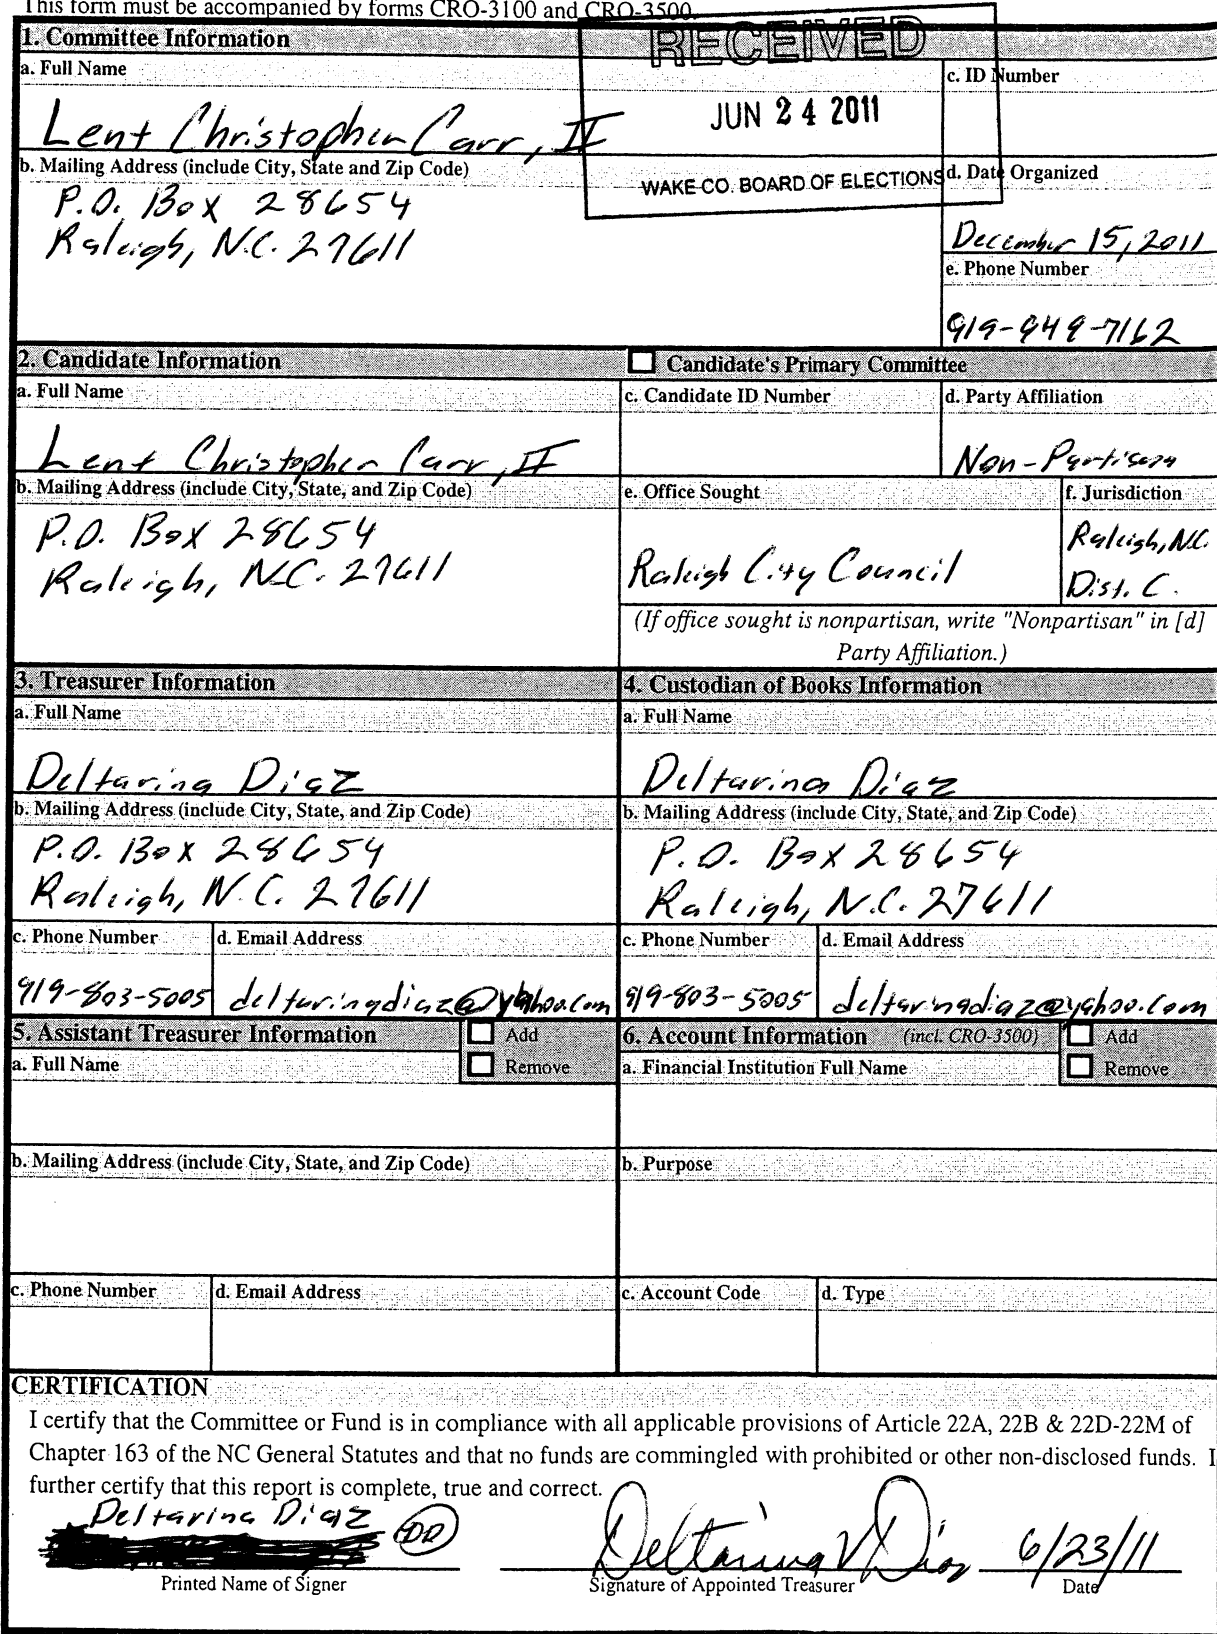 This form must be accompanied by forms CRO-3100 and CRO-3500.
1. Committee Information
RECEIVED
JUN 24 2011
WAKE CO. BOARD OF ELECTIONS
a. Full Name
Lent Christopher Carr, II
c. ID Number
b. Mailing Address (include City, State and Zip Code)
P.O. Box 28654
Raleigh, N.C. 27611
d. Date Organized
December 15, 2011
e. Phone Number
919-949-7162
2. Candidate Information
Candidate's Primary Committee
a. Full Name
Lent Christopher Carr, II
c. Candidate ID Number
d. Party Affiliation
Non-Partisan
b. Mailing Address (include City, State, and Zip Code)
P.O. Box 28654
Raleigh, N.C. 27611
e. Office Sought
Raleigh City Council
f. Jurisdiction
Raleigh, N.C.
Dist. C.
(If office sought is nonpartisan, write "Nonpartisan" in [d]
Party Affiliation.)
3. Treasurer Information
a. Full Name
Deltarina Diaz
b. Mailing Address (include City, State, and Zip Code)
P.O. Box 28654
Raleigh, N.C. 27611
c. Phone Number
919-803-5005
d. Email Address
deltarinadiaz@yahoo.com
4. Custodian of Books Information
a. Full Name
Deltarina Diaz
b. Mailing Address (include City, State, and Zip Code)
P.O. Box 28654
Raleigh, N.C. 27611
c. Phone Number
919-803-5005
d. Email Address
deltarinadiaz@yahoo.com
5. Assistant Treasurer Information
Add
Remove
a. Full Name
b. Mailing Address (include City, State, and Zip Code)
c. Phone Number
d. Email Address
6. Account Information (incl. CRO-3500)
Add
Remove
a. Financial Institution Full Name
b. Purpose
c. Account Code
d. Type
CERTIFICATION
I certify that the Committee or Fund is in compliance with all applicable provisions of Article 22A, 22B & 22D-22M of
Chapter 163 of the NC General Statutes and that no funds are commingled with prohibited or other non-disclosed funds. I
further certify that this report is complete, true and correct.
Deltarina Diaz DD
Deltarina V Diaz 6/23/11
Printed Name of Signer
Signature of Appointed Treasurer
Date